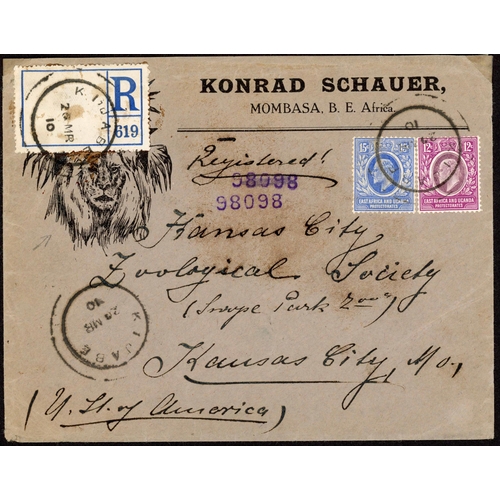 KONRAD SCHAUER,
MOMBASA, B. E. Africa.
R
619
KIJABE
29 MR
10
Registered!
98098
98098
15 15
EAST AFRICA AND UGANDA
PROTECTORATES
12 12
EAST AFRICA AND UGANDA
PROTECTORATES
Kansas City
Zoological Society
(Swope Park "Zoo")
Kansas City, Mo.,
(U. St. of America)
KIJABE
29 MR
10